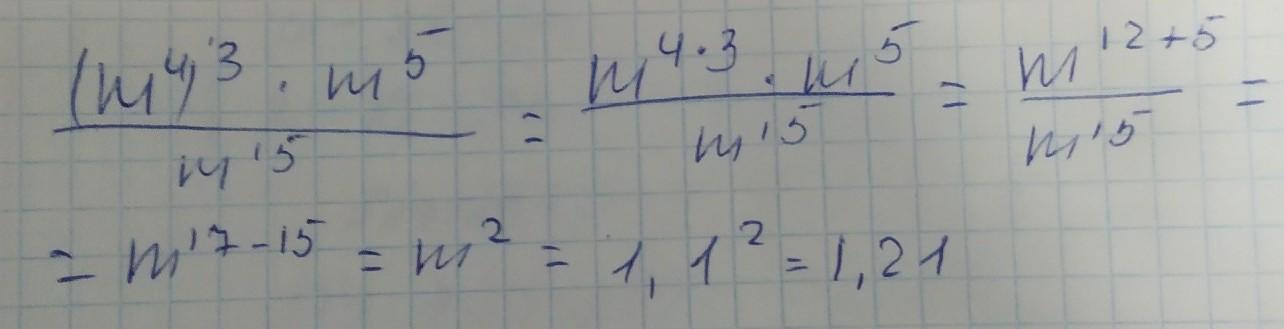 (m⁴)³ · m⁵ / m¹⁵ = m⁴·³ · m⁵ / m¹⁵ = m¹²⁺⁵ / m¹⁵ =
= m¹⁷⁻¹⁵ = m² = 1,1² = 1,21